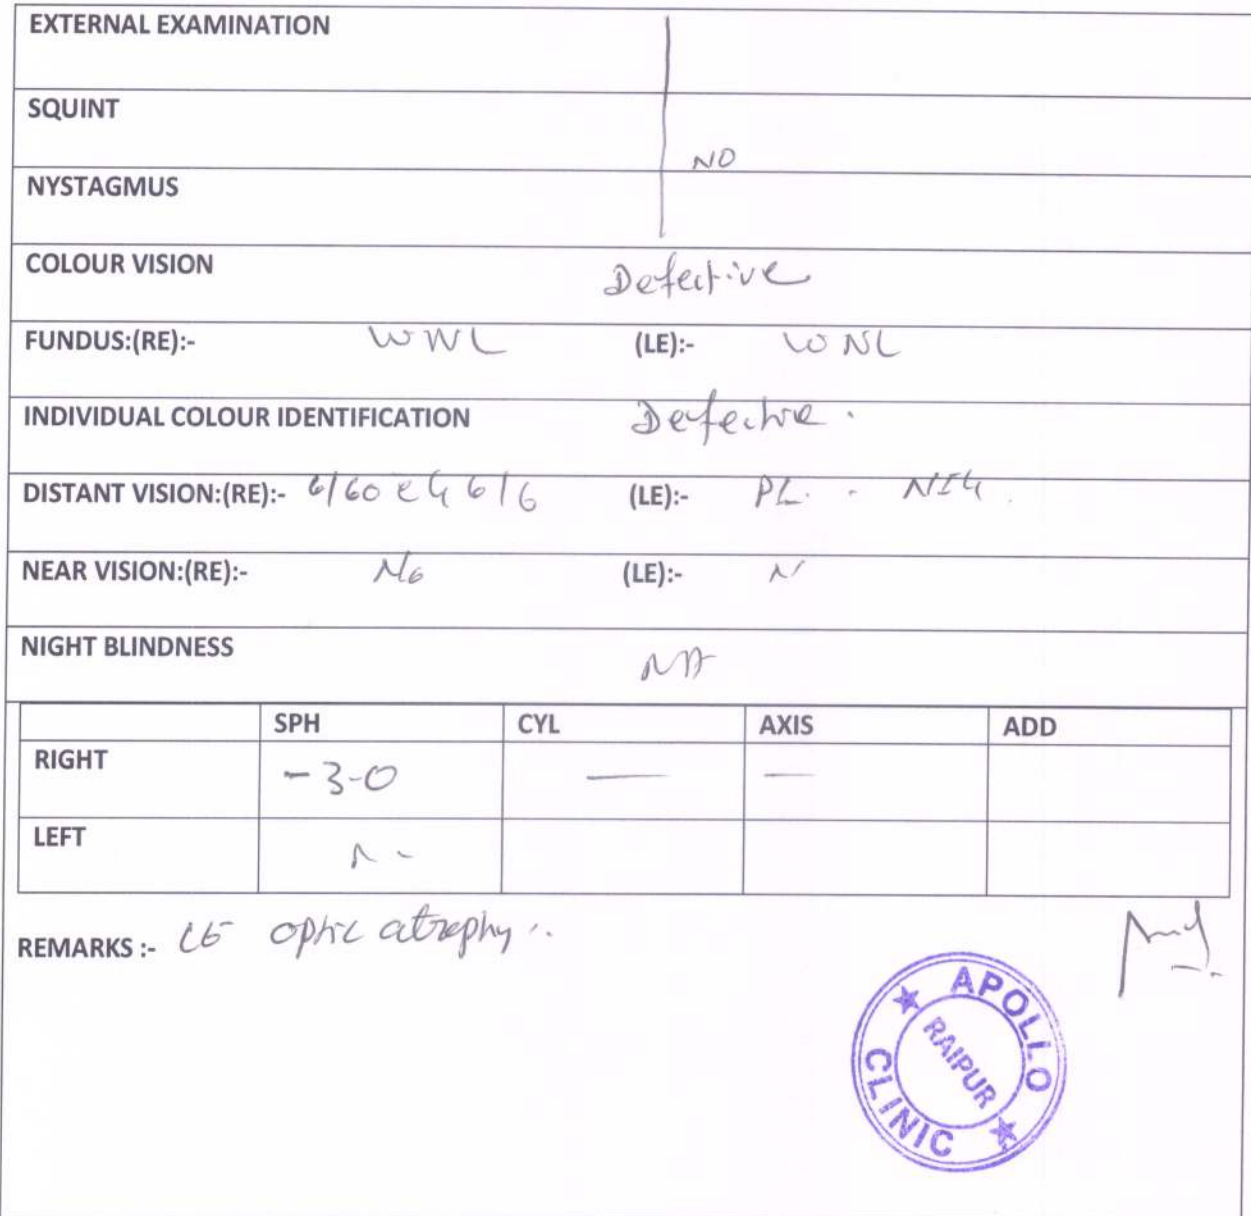 EXTERNAL EXAMINATION
SQUINT
NO
NYSTAGMUS
COLOUR VISION Defective
FUNDUS:(RE):- WNL (LE):- WNL
INDIVIDUAL COLOUR IDENTIFICATION Defective.
DISTANT VISION:(RE):- 6/60 6/6 (LE):- PL.
NEAR VISION:(RE):- N6 (LE):- N
NIGHT BLINDNESS
SPH CYL AXIS ADD
RIGHT -3-0 — —
LEFT
REMARKS :- LE optic atrophy..
APOLLO CLINIC
RAIPUR